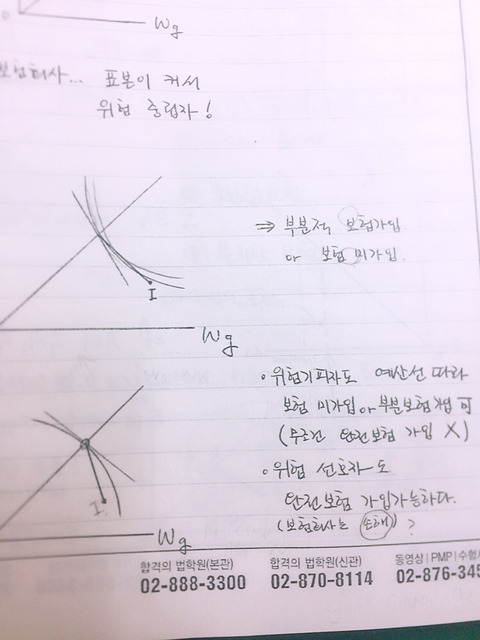 Wg
보험회사... 표본이 커서
위험 중립자!
⇒ 부분적 보험가입
or 보험 미가입.
I
Wg
◦위험기피자도 예산선 따라
보험 미가입 or 부분보험 가입 可
(무조건 완전보험 가입 X)
◦위험 선호자도
완전보험 가입가능하다.
(보험회사는 손해)?
I
Wg
합격의 법학원(본관) 합격의 법학원(신관) 동영상 | PMP | 수험서
02-888-3300 02-870-8114 02-876-345